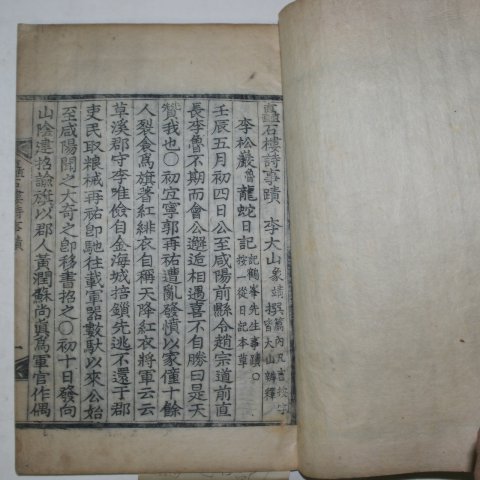 矗石樓詩事蹟 李大山象靖撰篇內凡言按字皆大山辨釋
李松巖魯龍蛇日記記鶴峯先生事蹟○按一從日記本草
壬辰五月初四日公至咸陽前縣令趙宗道前直
長李魯不期而會公邂逅相遇喜不自勝曰是天
贊我也○初宜寧郭再祐遭亂發憤以家僮十餘
人裂食爲旗著紅緋衣自稱天降紅衣將軍云云
草溪郡守李惟儉自金海城掊鎖先逃不還于郡
吏民取粮械再祐卽馳往載軍器數駄以來公始
至咸陽聞之大奇之卽移書招之○初十日發向
山陰建招諭旗以郡人黃潤蘇尙眞爲軍官作偶
矗石樓詩事蹟 一